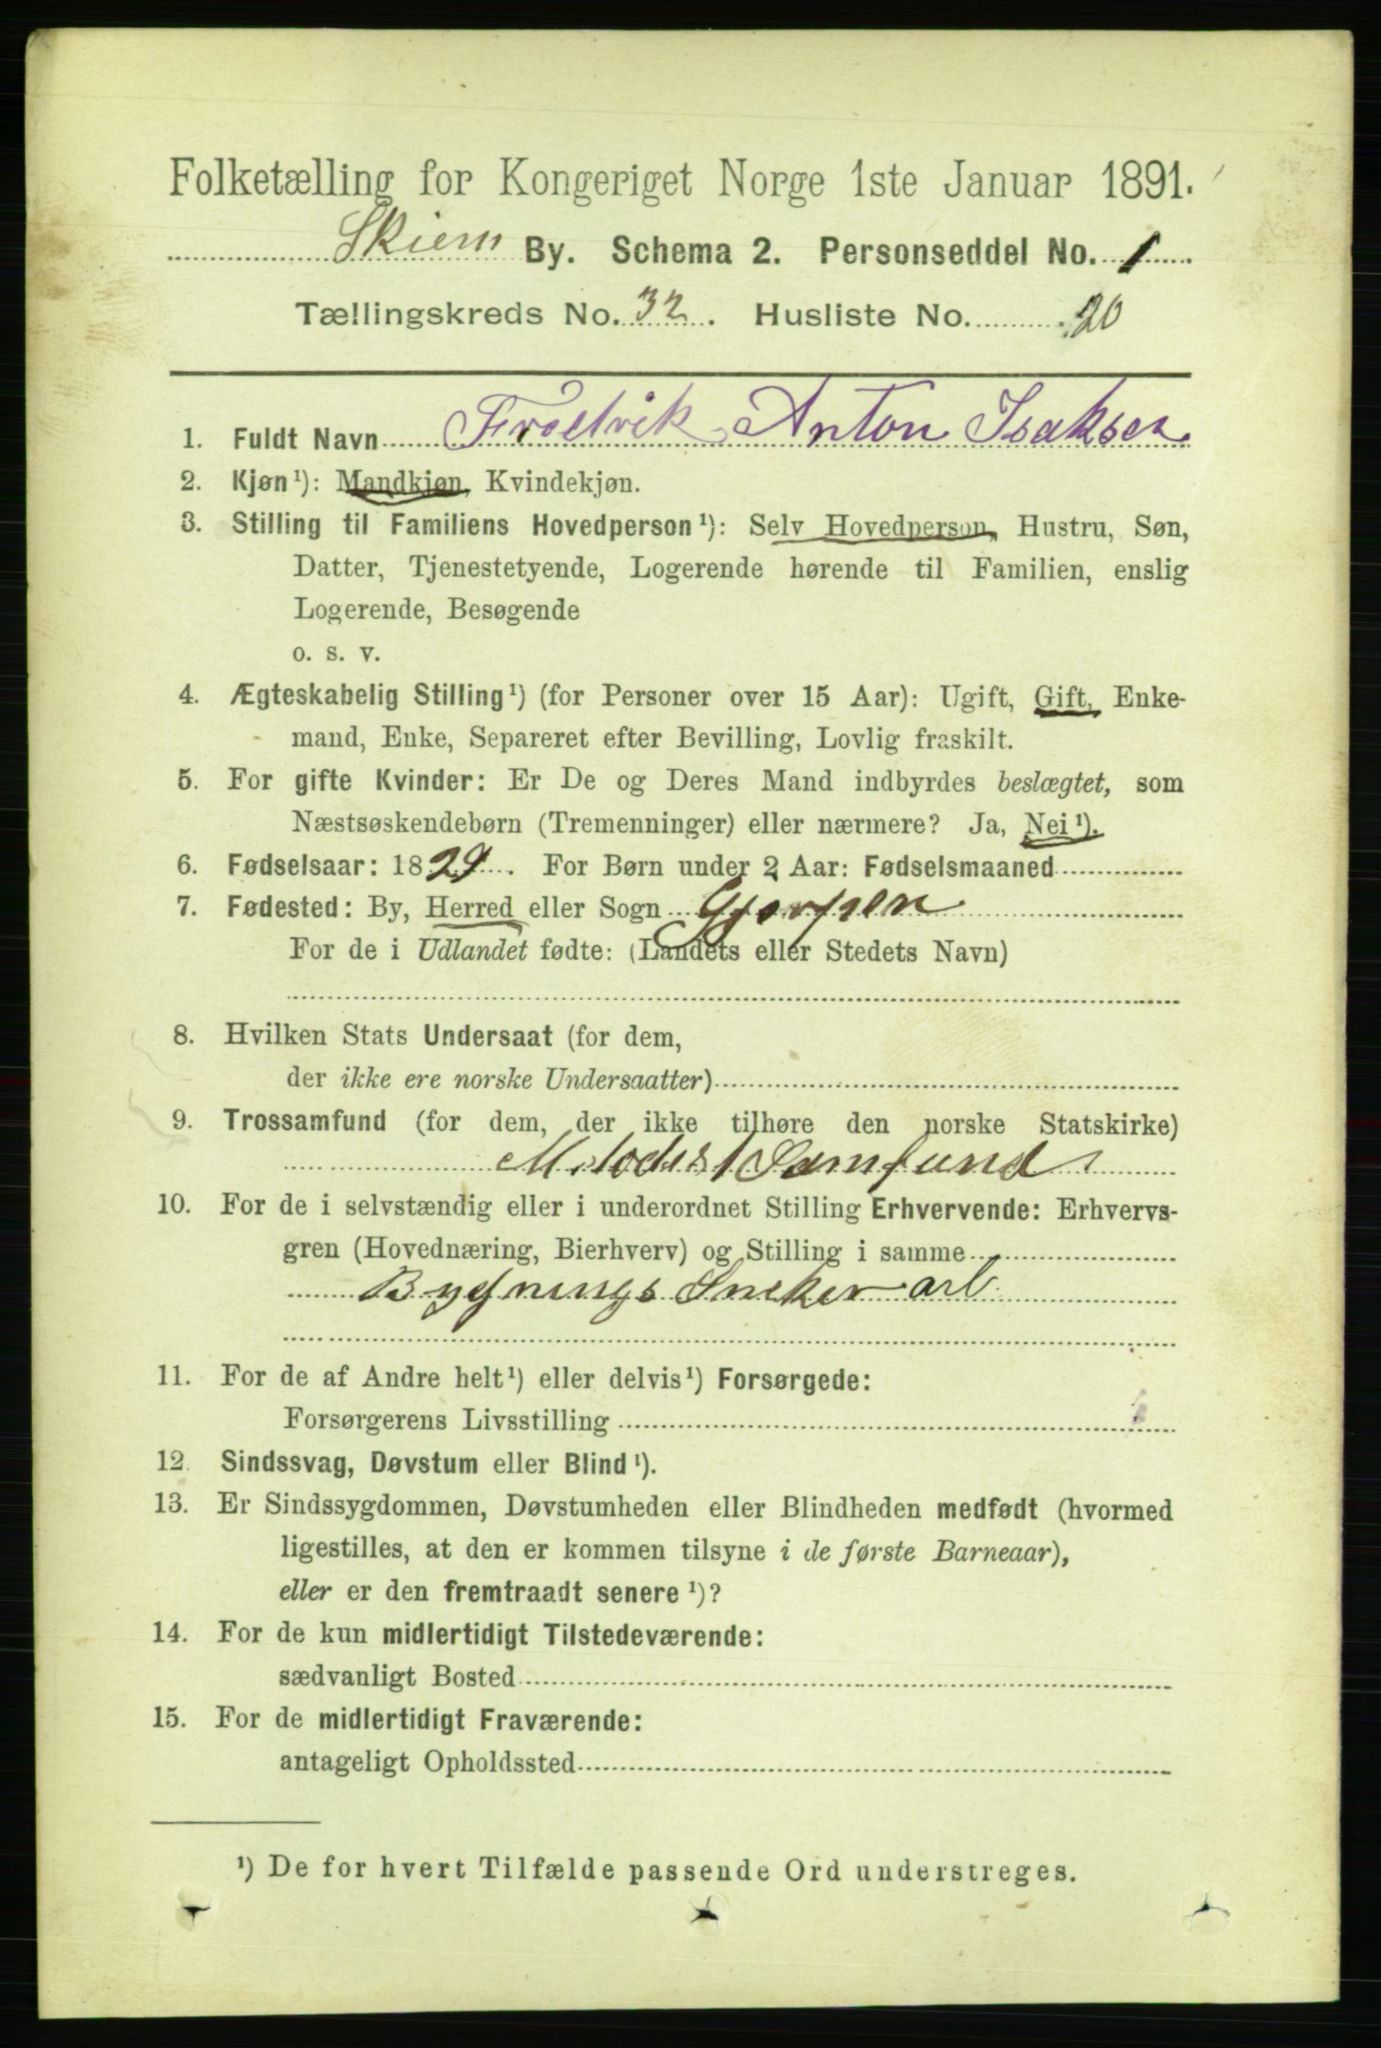 Folketælling for Kongeriget Norge 1ste Januar 1891.
Skiem By. Schema 2. Personseddel No. 1
Tællingskreds No. 32. Husliste No. 20
1. Fuldt Navn Fredrik Anton Isaksen
2. Kjøn¹): Mandkjøn, Kvindekjøn.
3. Stilling til Familiens Hovedperson¹): Selv Hovedperson, Hustru, Søn,
Datter, Tjenestetyende, Logerende hørende til Familien, enslig
Logerende, Besøgende
o. s. v.
4. Ægteskabelig Stilling¹) (for Personer over 15 Aar): Ugift, Gift, Enke-
mand, Enke, Separeret efter Bevilling, Lovlig fraskilt.
5. For gifte Kvinder: Er De og Deres Mand indbyrdes beslægtet, som
Næstsøskendebørn (Tremenninger) eller nærmere? Ja, Nei¹).
6. Fødselsaar: 1829. For Børn under 2 Aar: Fødselsmaaned
7. Fødested: By, Herred eller Sogn Gjerpen
For de i Udlandet fødte: (Landets eller Stedets Navn)
8. Hvilken Stats Undersaat (for dem,
der ikke ere norske Undersaatter)
9. Trossamfund (for dem, der ikke tilhøre den norske Statskirke)
Metodest Samfund
10. For de i selvstændig eller i underordnet Stilling Erhvervende: Erhvervs-
gren (Hovednæring, Bierhverv) og Stilling i samme
Bygnings Sneker arb.
11. For de af Andre helt¹) eller delvis¹) Forsørgede:
Forsørgerens Livsstilling
12. Sindssvag, Døvstum eller Blind¹).
13. Er Sindssygdommen, Døvstumheden eller Blindheden medfødt (hvormed
ligestilles, at den er kommen tilsyne i de første Barneaar),
eller er den fremtraadt senere¹)?
14. For de kun midlertidigt Tilstedeværende:
sædvanligt Bosted
15. For de midlertidigt Fraværende:
antageligt Opholdssted
¹) De for hvert Tilfælde passende Ord understreges.